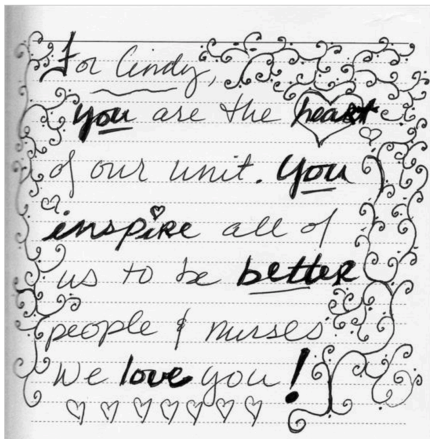 For Cindy,
you are the heart
of our unit. You
inspire all of
us to be better
people & nurses
We love you!